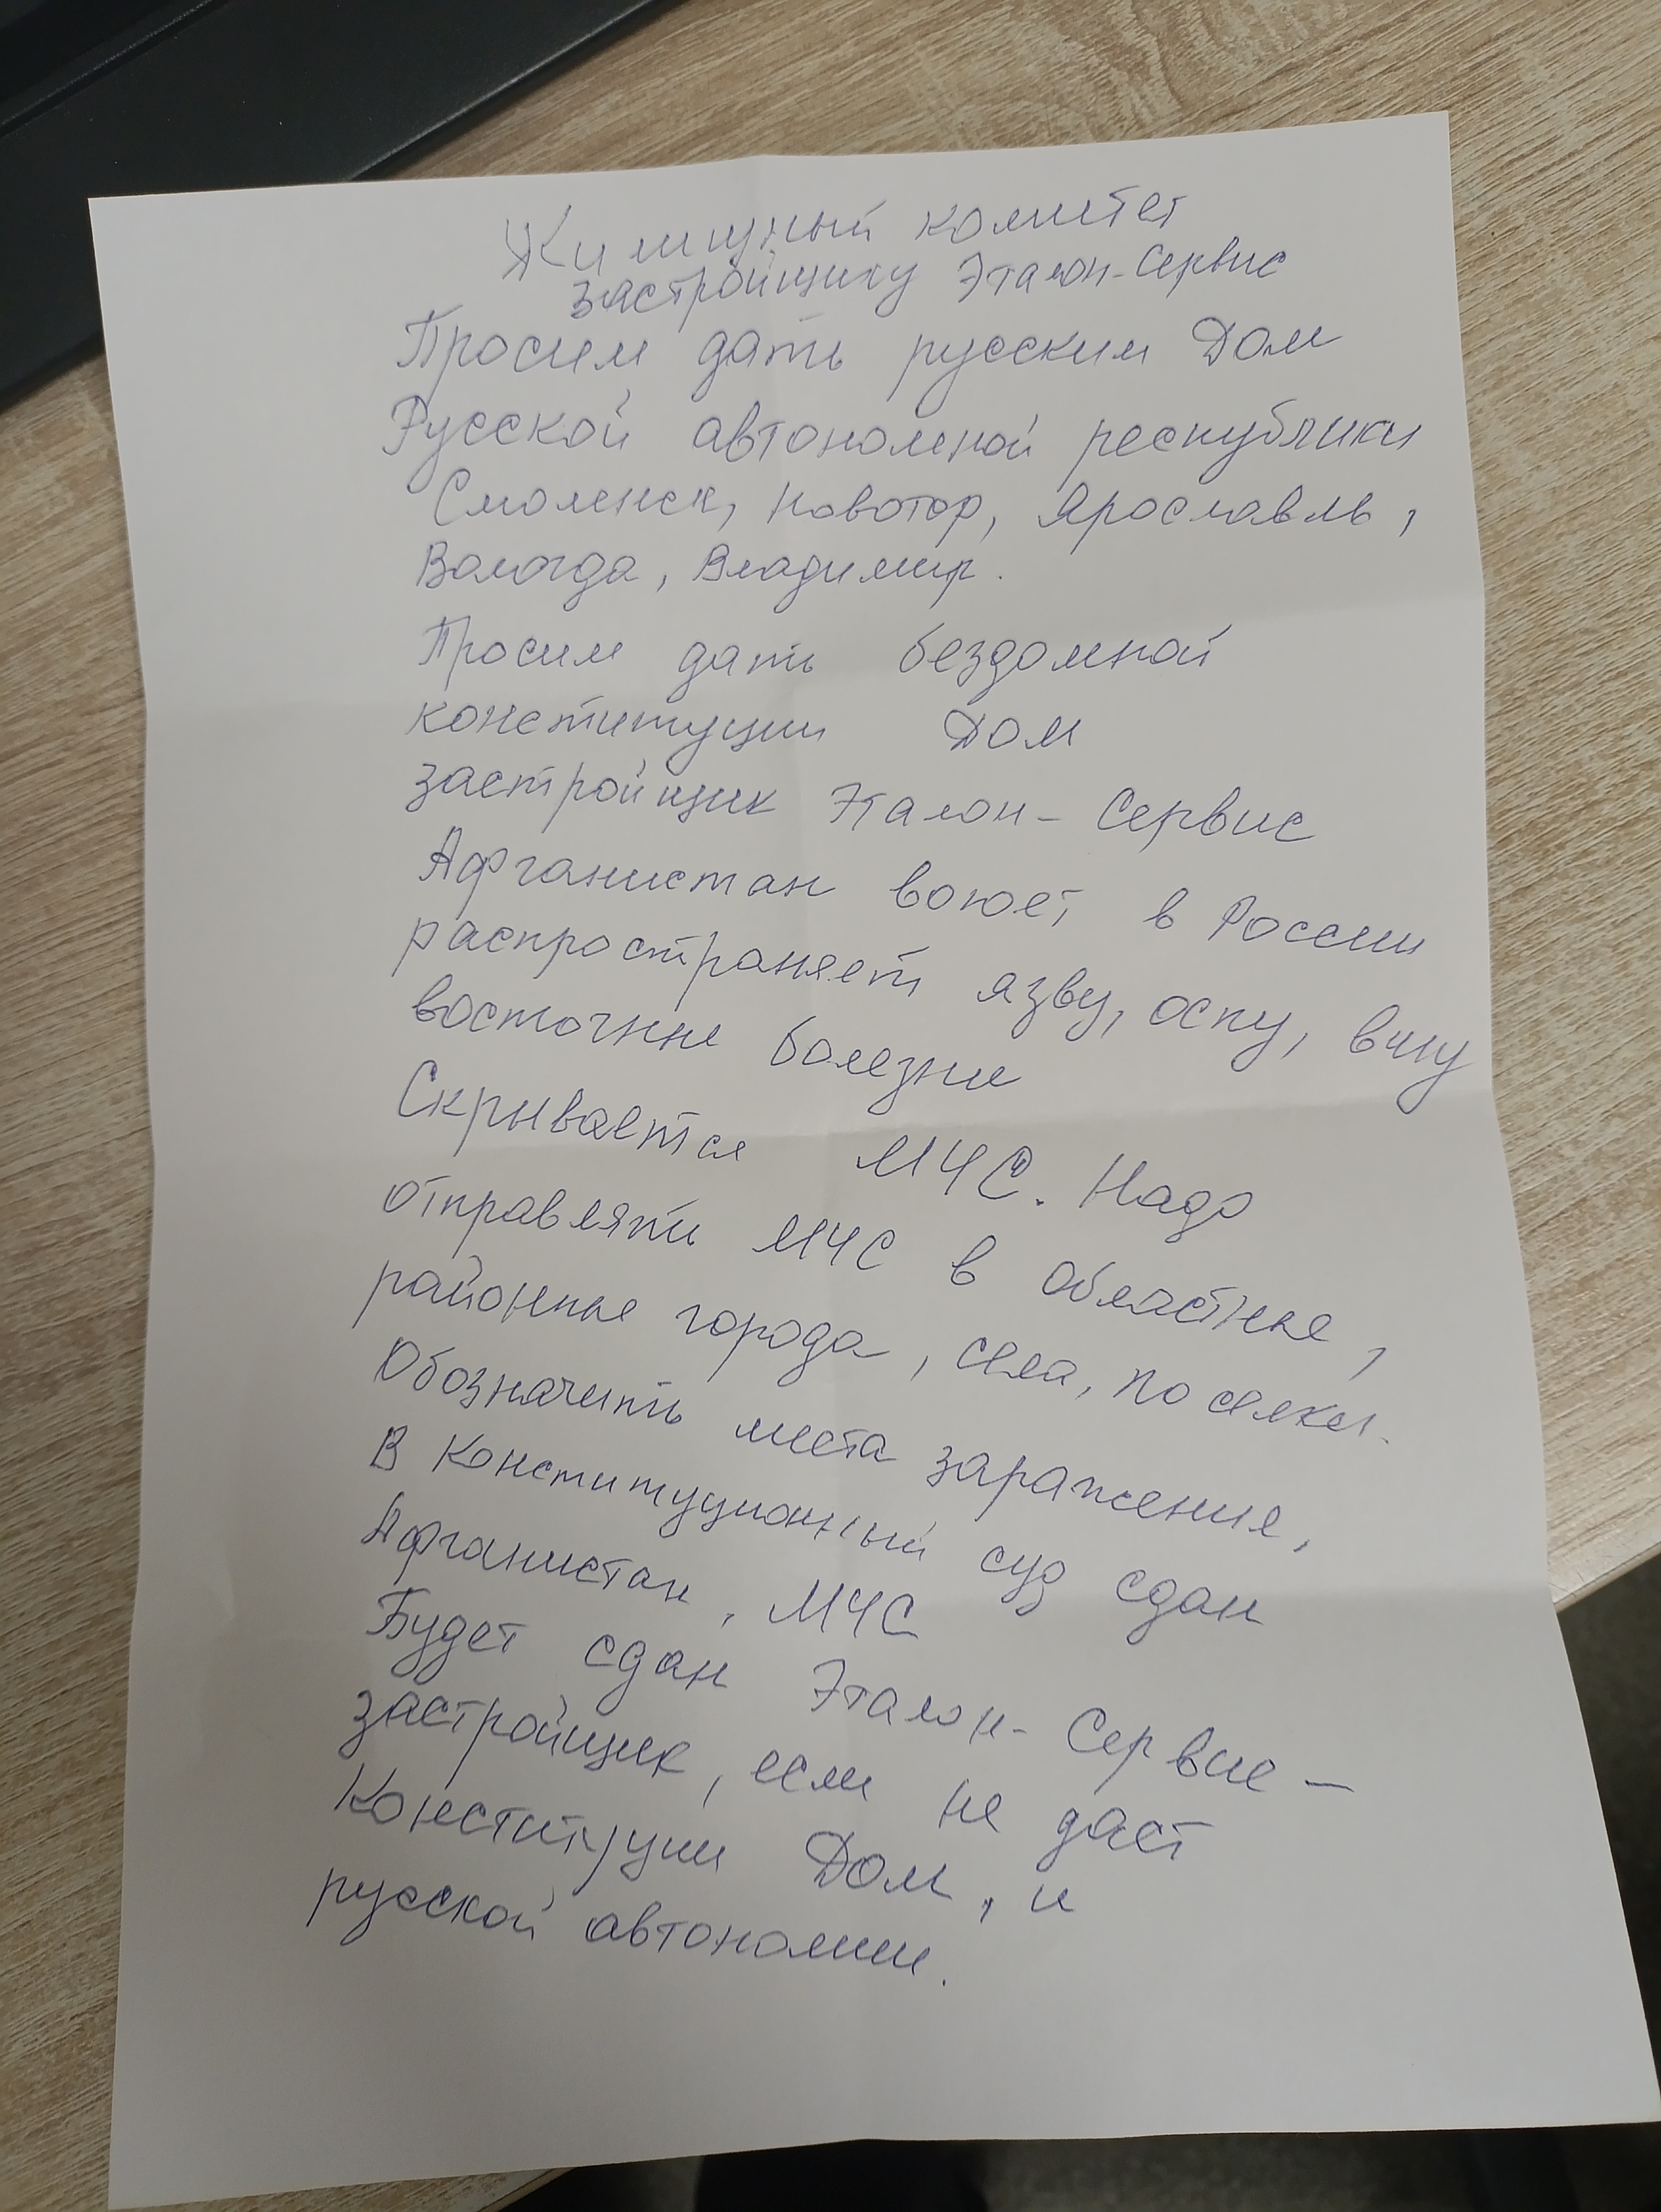 Жилищный комитет
застройщику Эталон-Сервис
Просим дать русским Дом
Русской автономной республики
Смоленск, Новотор, Ярославль,
Вологда, Владимир.
Просим дать бездомной
конституции Дом
застройщик Эталон-Сервис
Афганистан воюет в России
распространяет язву, оспу,
восточные болезни
Скрывается МЧС. Надо
отправлять МЧС в областные,
районные города, села, поселки.
Обозначить места заражения,
В Конституционный суд сдан
Афганистан, МЧС
Будет сдан Эталон-Сервис –
застройщик, если не даст
Конституции Дом, и
русской автономии.